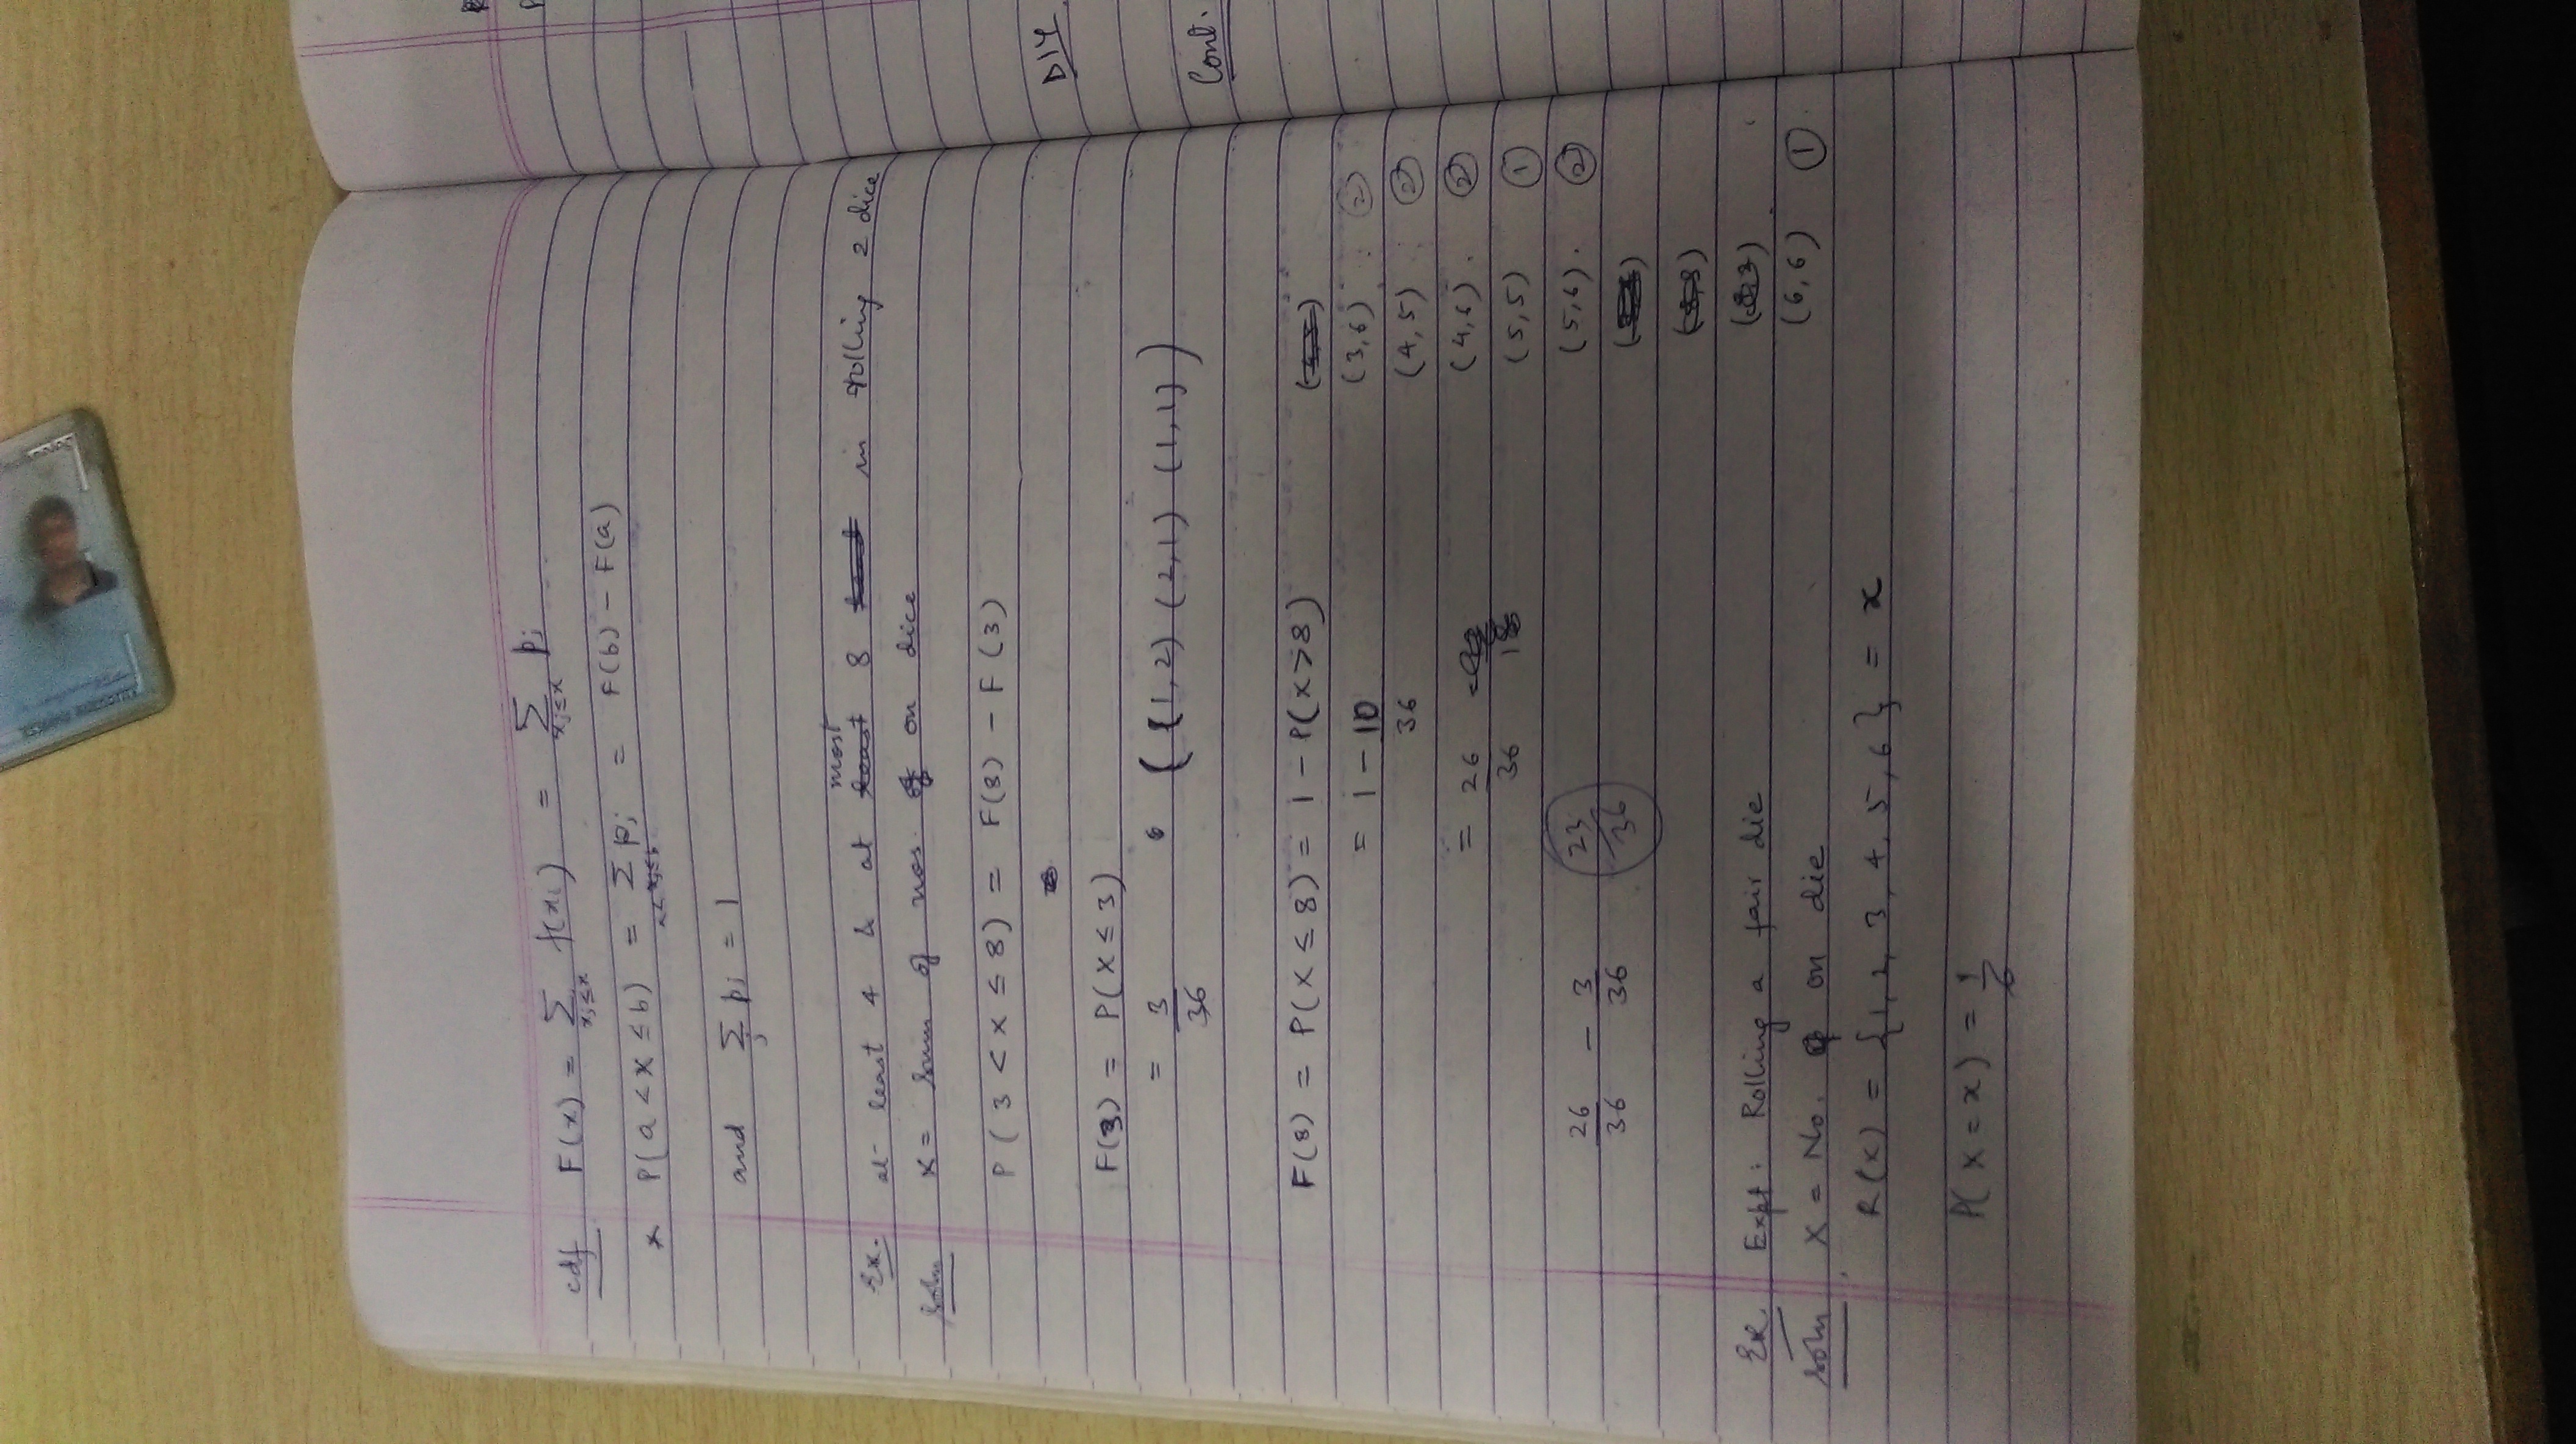 cdf F(x) = Σ f(xj) = Σ pj
xj≤x xj≤x
* P(a < X ≤ b) = Σ pj = F(b) - F(a)
and Σ pj = 1
j
most
Ex. at-least 4 & at least 8 in rolling 2 dice
Soln X = Sum of nos. on dice
P(3 < X ≤ 8) = F(8) - F(3)
F(3) = P(X ≤ 3)
= 3/36 ({1,2) (2,1) (1,1)})
F(8) = P(X ≤ 8) = 1 - P(X > 8)
= 1 - 10/36
= 26/36
26/36 - 3/36 23/36
(3,6) 2
(4,5) 2
(4,6) 2
(5,5) 1
(5,6) 2
(6,6) 1
Ex. Expt: Rolling a fair die
Soln X = No. on die
R(X) = {1, 2, 3, 4, 5, 6} = x
P(X = x) = 1/6
DIY
Cont.